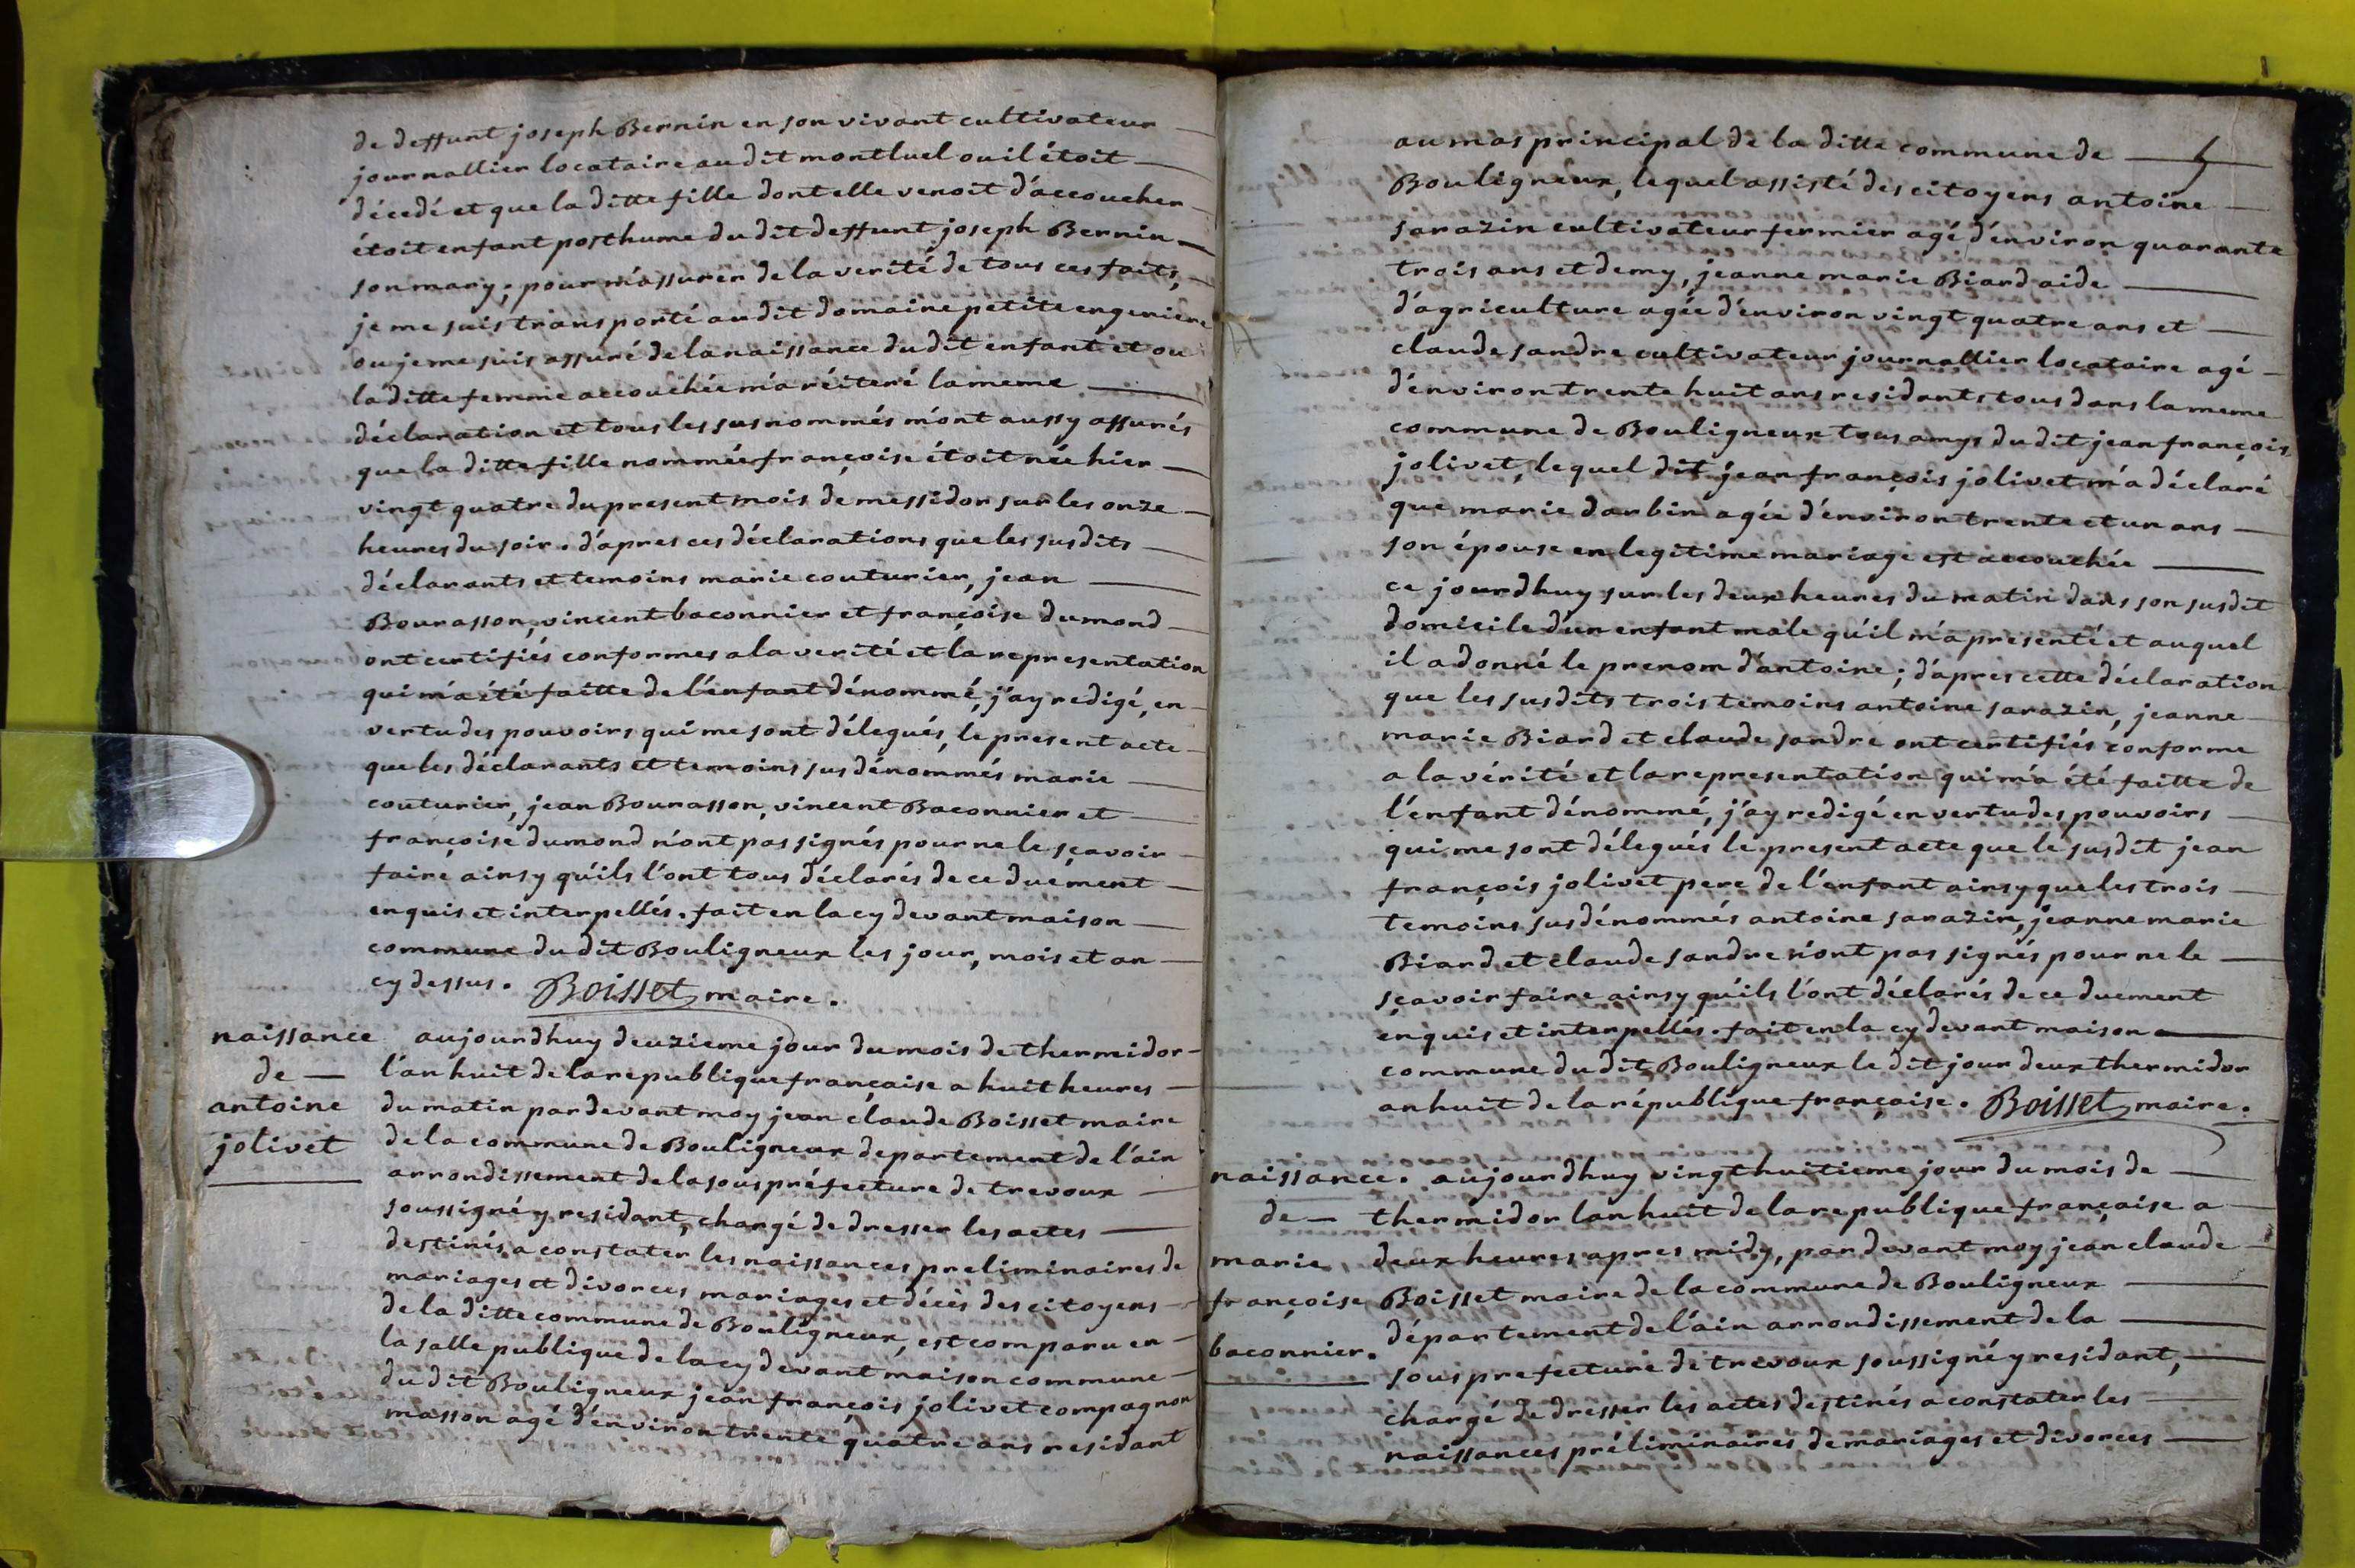 de deffunt joseph Bernin en son vivant cultivateur
journallier locataire audit montluel ou il étoit
décedé et que la ditte fille dont elle venoit d'accoucher
étoit enfant posthume du dit deffunt joseph Bernin
son mary; pour m'assurer de la verité de tous ces faits,
je me suis transporté au dit domaine petite engeniere
ou je me suis assuré de la naissance du dit enfant et ou
la ditte femme accouchée m'a réiteré la meme
déclaration et tous les susnommés m'ont aussy assurés
que la ditte fille nommée françoise étoit née hier
vingt quatre du present mois de messidor sur les onze
heures du soir. d'apres ces déclarations que les susdits
déclarants et temoins marie couturier, jean
Bourasson, vincent baconnier et françoise dumond
ont certifiés conformes a la verité et la representation
qui m'a été faitte de l'enfant dénommé, j'ay redigé, en
vertu des pouvoirs qui me sont délegués, le present acte
que les déclarants et temoins susdénommés marie
couturier, jean Bourasson, vincent Baconnier et
françoise dumond n'ont pas signés pour ne le sçavoir
faire ainsy qu'ils l'ont tous déclarés de ce duement
enquis et interpellés. fait en la cy devant maison
commune du dit Bouligneux les jour, mois et an
cy dessus. Boisset maire.
naissance
de
antoine
jolivet
aujourdhuy deuzieme jour du mois de thermidor
l'an huit de la republique française a huit heures
du matin par devant moy jean claude Boisset maire
de la commune de Bouligneux departement de l'ain
arrondissement de la sous préfecture de trevoux
soussigné y residant, chargé de dresser les actes
destinés a constater les naissances preliminaires de
mariages et divorces mariages et décès des citoyens
de la ditte commune de Bouligneux, est comparu en
la salle publique de la cy devant maison commune
du dit Bouligneux jean françois jolivet compagnon
masson agé d'environ trente quatre ans residant
au mas principal de la ditte commune de
Bouligneux, lequel assisté des citoyens antoine
sarazin cultivateur fermier agé d'environ quarante
trois ans et demy, jeanne marie Biard aide
d'agriculture agée d'environ vingt quatre ans et
claude sandre cultivateur journallier locataire agé
d'environ trente huit ans residants tous dans la meme
commune de Bouligneux tous amys du dit jean françois
jolivet, lequel dit jean françois jolivet m'a déclaré
que marie darbin agée d'environ trente et un ans
son épouse en legitime mariage est accouchée
ce jourdhuy sur les deux heures du matin dans son susdit
domicile d'un enfant male qu'il m'a presenté et auquel
il a donné le prenom d'antoine; d'apres cette déclaration
que les susdits trois temoins antoine sarazin, jeanne
marie Biard et claude sandre ont certifiés conforme
a la vérité et la representation qui m'a été faitte de
l'enfant dénommé, j'ay redigé en vertu des pouvoirs
qui me sont délegués le present acte que le susdit jean
françois jolivet pere de l'enfant ainsy que les trois
temoins susdénommés antoine sarazin, jeanne marie
Biard et claude sandre n'ont pas signés pour ne le
sçavoir faire ainsy qu'ils l'ont déclarés de ce duement
enquis et interpellés. fait en la cy devant maison
commune du dit Bouligneux le dit jour deux thermidor
an huit de la république française. Boisset maire.
naissance.
de
marie
françoise
baconnier.
aujourdhuy vingt huitieme jour du mois de
thermidor l'an huit de la republique française a
deux heures apres midy, par devant moy jean claude
Boisset maire de la commune de Bouligneux
département de l'ain arrondissement de la
sous prefecture de trevoux soussigné y residant,
chargé de dresser les actes destinés a constater les
naissances préliminaires de mariages et divorces